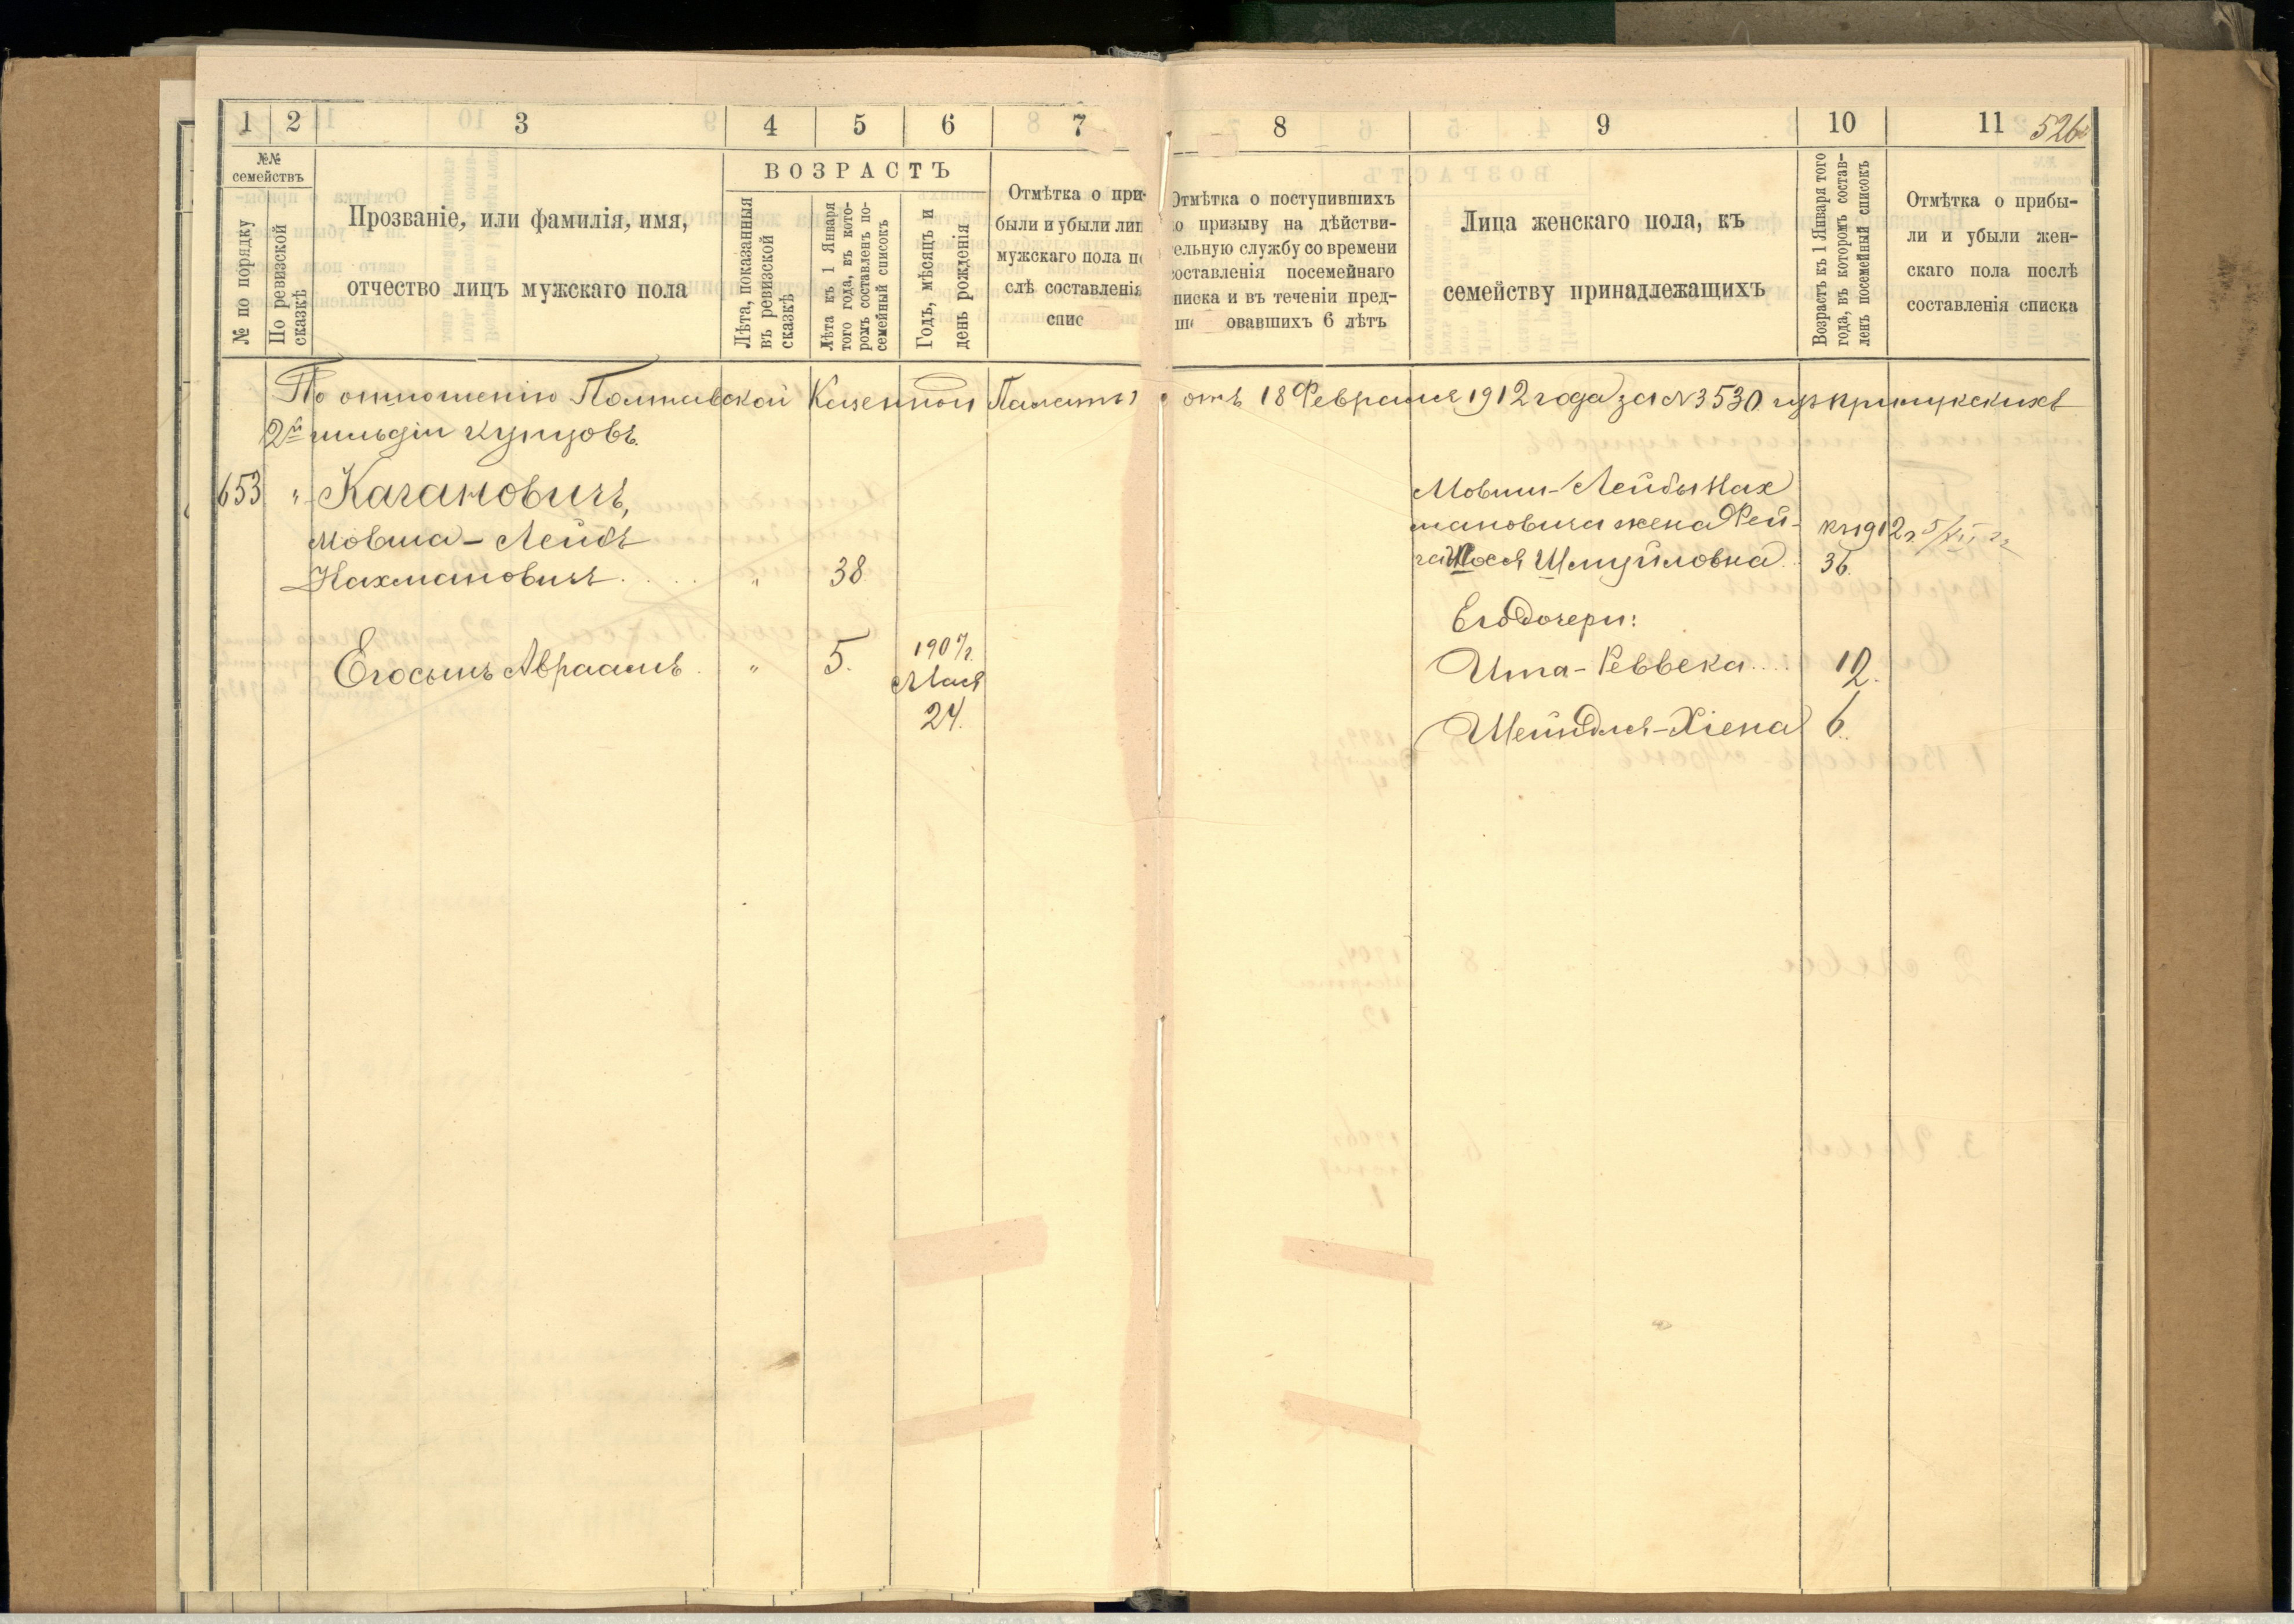 1 2 3 4 5 6 7 8 9 10 11 526
№№ семействъ
№ по порядку
По ревизской сказкѣ
Прозваніе, или фамилія, имя,
отчество лицъ мужскаго пола
ВОЗРАСТЪ
Лѣта, показанныя
въ ревизской
сказкѣ
Лѣта къ 1 Января
того года, въ кото-
ромъ составленъ по-
семейный списокъ
Годъ, мѣсяцъ и
день рожденія
Отмѣтка о при-
были и убыли лиц
мужскаго пола по
слѣ составленія
спис
Отмѣтка о поступившихъ
о призыву на дѣйстви-
ельную службу со времени
оставленія посемейнаго
писка и въ теченіи пред-
ше овавшихъ 6 лѣтъ
Лица женскаго пола, къ
семейству принадлежащихъ
Возрастъ къ 1 Января того
года, въ которомъ состав-
ленъ посемейный списокъ
Отмѣтка о прибы-
ли и убыли жен-
скаго пола послѣ
составленія списка
По отношенію Полтавской Казенной Палаты отъ 18 Февраля 1912 года за № 3530 изъ прилукскихъ
2й гильдіи купцовъ.
653 " Кагановичъ,
Мовша-Лейбъ
Нахмановичъ " 38
Его сынъ Авраамъ " 5. 1907 г.
Мая
24.
Мовши-Лейбы Нах
мановича жена Фей-
га Шося Шмуйловна къ 1912 г.
36.
Его дочери:
Ита-Реввека 12.
Шейндля-Хіена 6.